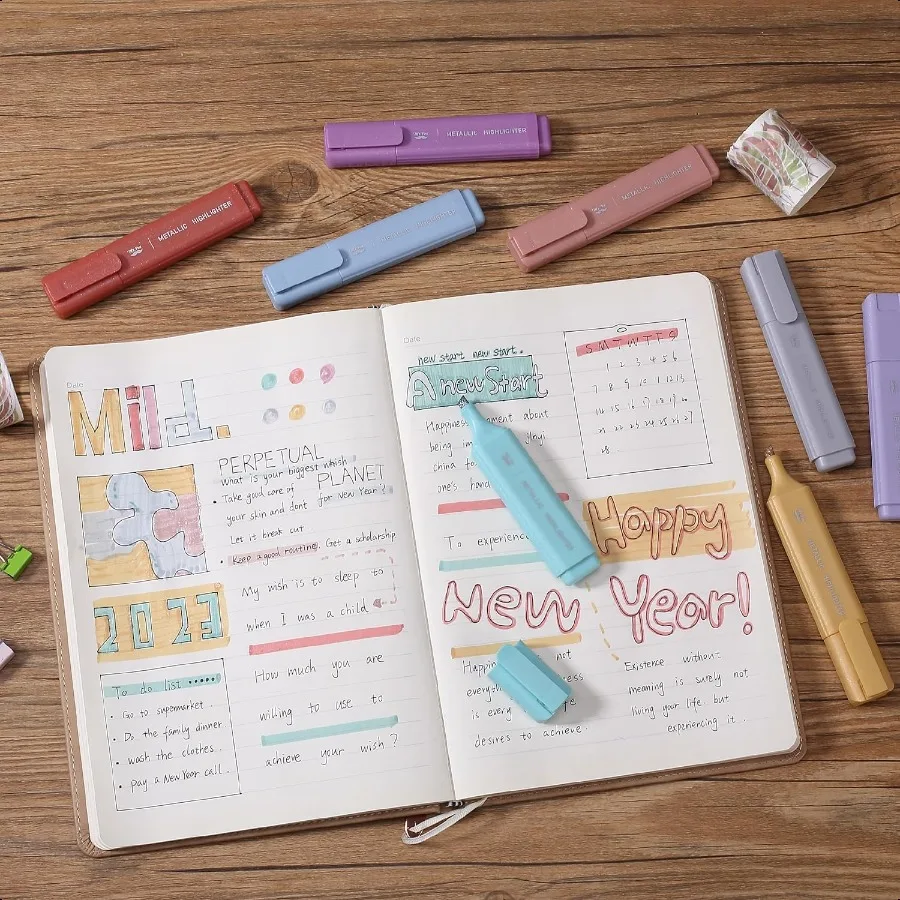 METALLIC HIGHLIGHTER
METALLIC HIGHLIGHTER
METALLIC HIGHLIGHTER
Date
Mild.
PERPETUAL
what is your biggest which
PLANET
• Take good care of
for New Year?
your skin and dont
Let it break cut
• Keep a good routine. Get a scholarship
My wish is to sleep to
when I was a child
2023
How much you are
willing to use to
achieve your wish?
To do list •••••
• Go to supermarket..
• Do the family dinner
• wash the clothes..
• pay a New Year call..
Date
new start new start.
A new Start
Happiness ment about
being im Jinyi
china fo
one's hand
S M T W T F S
1 2 3 4 5 6
7 8 9 10 11 12 13
14 15 16 17 18 19 20
21 22 23 24 25 26 27
28..
To experience
Happy
New Year!
Happin not
everyth ess
is every fe
desires to achieve..
Existence without
meaning is surely not
living your life. but
experiencing it...